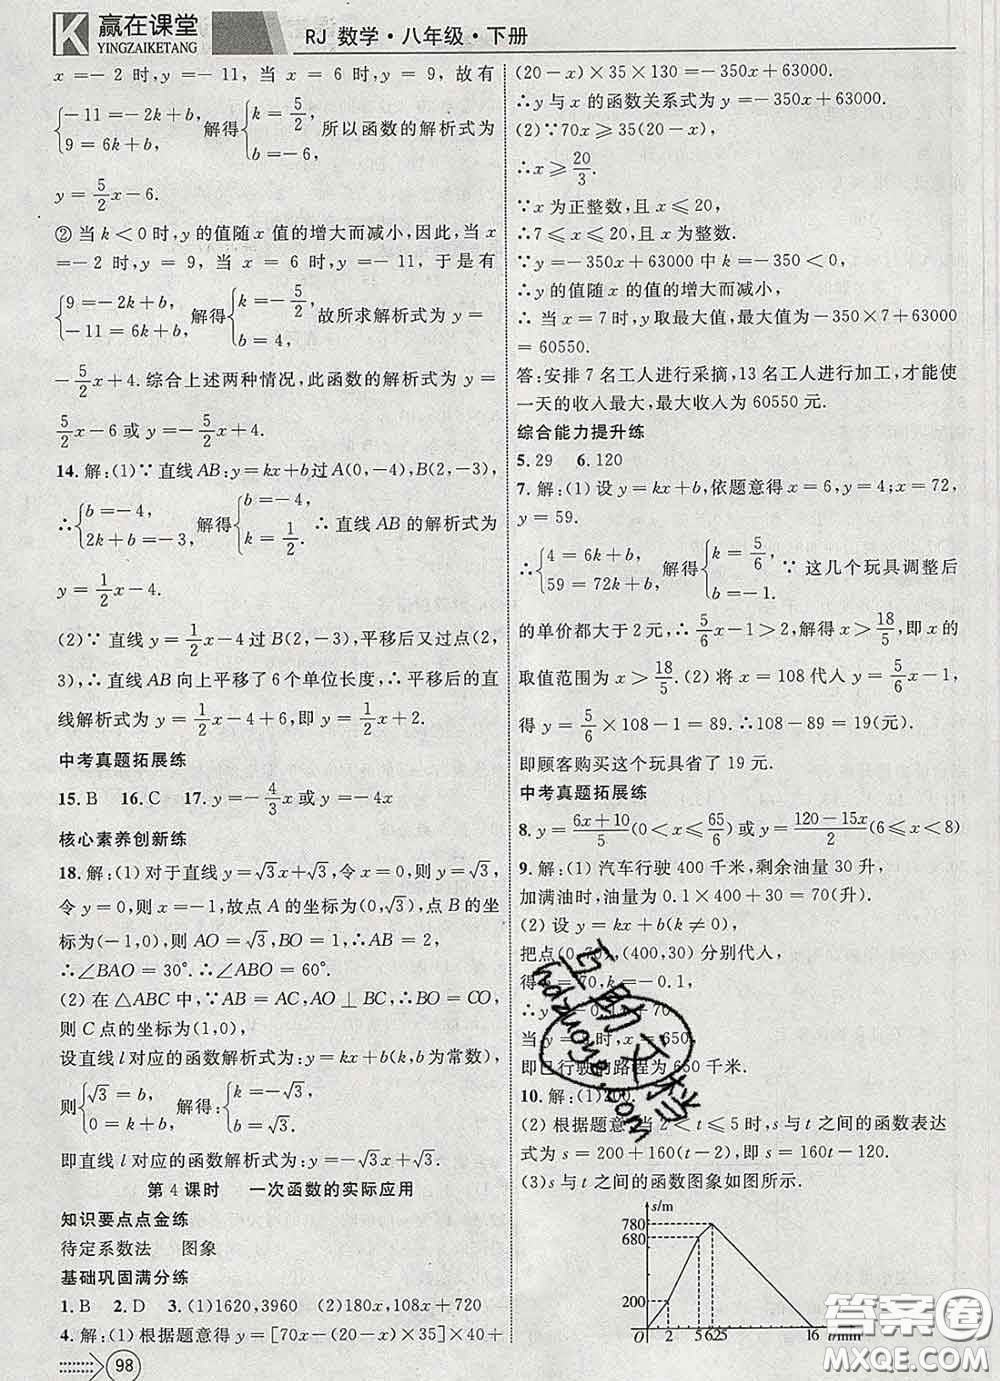 K 赢在课堂
YINGZAIKETANG
RJ 数学·八年级·下册
x=-2 时,y=-11, 当 x=6 时,y=9, 故有
{-11=-2k+b, 9=6k+b, 解得{k=5/2, b=-6, 所以函数的解析式为
y=5/2x-6.
② 当 k<0 时,y 的值随 x 值的增大而减小,因此,当 x
=-2 时,y=9, 当 x=6 时,y=-11, 于是有
{9=-2k+b, -11=6k+b, 解得{k=-5/2, b=4, 故所求解析式为 y=
-5/2x+4. 综合上述两种情况,此函数的解析式为 y=
5/2x-6 或 y=-5/2x+4.
14. 解:(1)∵ 直线 AB:y=kx+b 过 A(0,-4),B(2,-3),
∴{b=-4, 2k+b=-3, 解得{b=-4, k=1/2. ∴ 直线 AB 的解析式为
y=1/2x-4.
(2)∵ 直线 y=1/2x-4 过 B(2,-3),平移后又过点(2,
3),∴ 直线 AB 向上平移了 6 个单位长度,∴ 平移后的直
线解析式为 y=1/2x-4+6,即 y=1/2x+2.
中考真题拓展练
15. B 16. C 17. y=-4/3x 或 y=-4x
核心素养创新练
18. 解:(1) 对于直线 y=√3x+√3,令 x=0,则 y=√3,
令 y=0,则 x=-1,故点 A 的坐标为(0,√3),点 B 的坐
标为(-1,0),则 AO=√3,BO=1,∴ AB=2,
∴∠BAO=30°.∴∠ABO=60°.
(2) 在 △ABC 中,∵ AB=AC,AO⊥BC,∴ BO=CO,
则 C 点的坐标为(1,0),
设直线 l 对应的函数解析式为:y=kx+b(k,b 为常数),
则{√3=b, 0=k+b, 解得:{k=-√3, b=√3,
即直线 l 对应的函数解析式为:y=-√3x+√3.
第 4 课时 一次函数的实际应用
知识要点点金练
待定系数法 图象
基础巩固满分练
1. B 2. D 3. (1)1620,3960 (2)180x,108x+720
4. 解:(1) 根据题意得 y=[70x-(20-x)×35]×40+
98
(20-x)×35×130=-350x+63000.
∴y 与 x 的函数关系式为 y=-350x+63000.
(2)∵70x⩾35(20-x),
∴x⩾20/3.
∵x 为正整数,且 x⩽20,
∴7⩽x⩽20,且 x 为整数.
∵y=-350x+63000 中 k=-350<0,
∴y 的值随 x 的值的增大而减小,
∴ 当 x=7 时,y 取最大值,最大值为-350×7+63000
=60550.
答:安排 7 名工人进行采摘,13 名工人进行加工,才能使
一天的收入最大,最大收入为 60550 元.
综合能力提升练
5. 29 6. 120
7. 解:(1) 设 y=kx+b,依题意得 x=6,y=4;x=72,
y=59.
∴{4=6k+b, 59=72k+b, 解得{k=5/6, b=-1. ∵ 这几个玩具调整后
的单价都大于 2 元,∴ 5/6x-1>2,解得 x>18/5,即 x 的
取值范围为 x>18/5. (2) 将 x=108 代入 y=5/6x-1,
得 y=5/6×108-1=89. ∴108-89=19(元).
即顾客购买这个玩具省了 19 元.
中考真题拓展练
8. y=6x+10/5(0<x⩽65/6) 或 y=120-15x/2(6⩽x<8)
9. 解:(1) 汽车行驶 400 千米,剩余油量 30 升,
加满油时,油量为 0.1×400+30=70(升).
(2) 设 y=kx+b(k≠0),
把点(0,70),(400,30) 分别代入,
得 b=70,k=-0.1,
∴y=-0.1x+70
当 y=5 时,x=650
即已行驶的路程为 650 千米.
10. 解:(1)200.
(2) 根据题意,当 2<t⩽5 时,s 与 t 之间的函数表达
式为 s=200+160(t-2)=160t-120.
(3)s 与 t 之间的函数图象如图所示.
s/m
780
680
200
0 2 5 6.25 16 t/min
互助文档
hdzuoye.com
答案圈
MXQE.COM